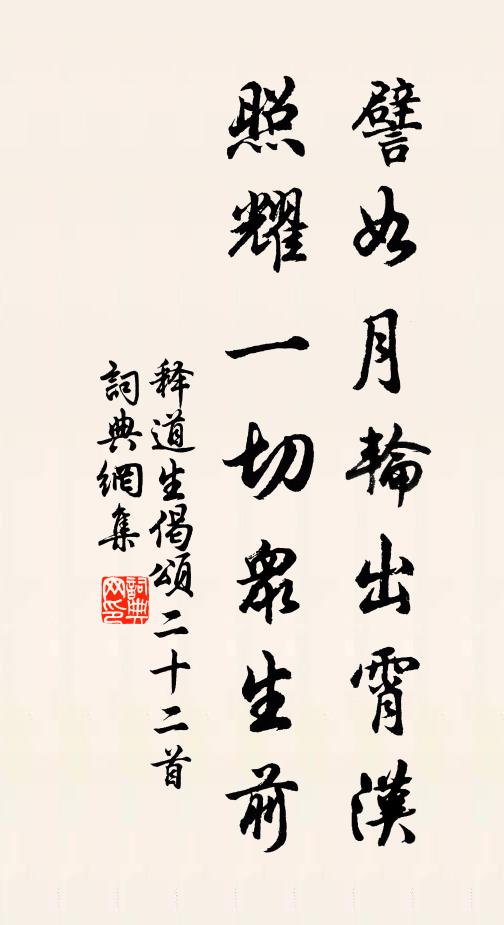 譬如月輪出霄漢
照耀一切眾生前
释道生偈頌二十二首
詞典網集
詞典網印